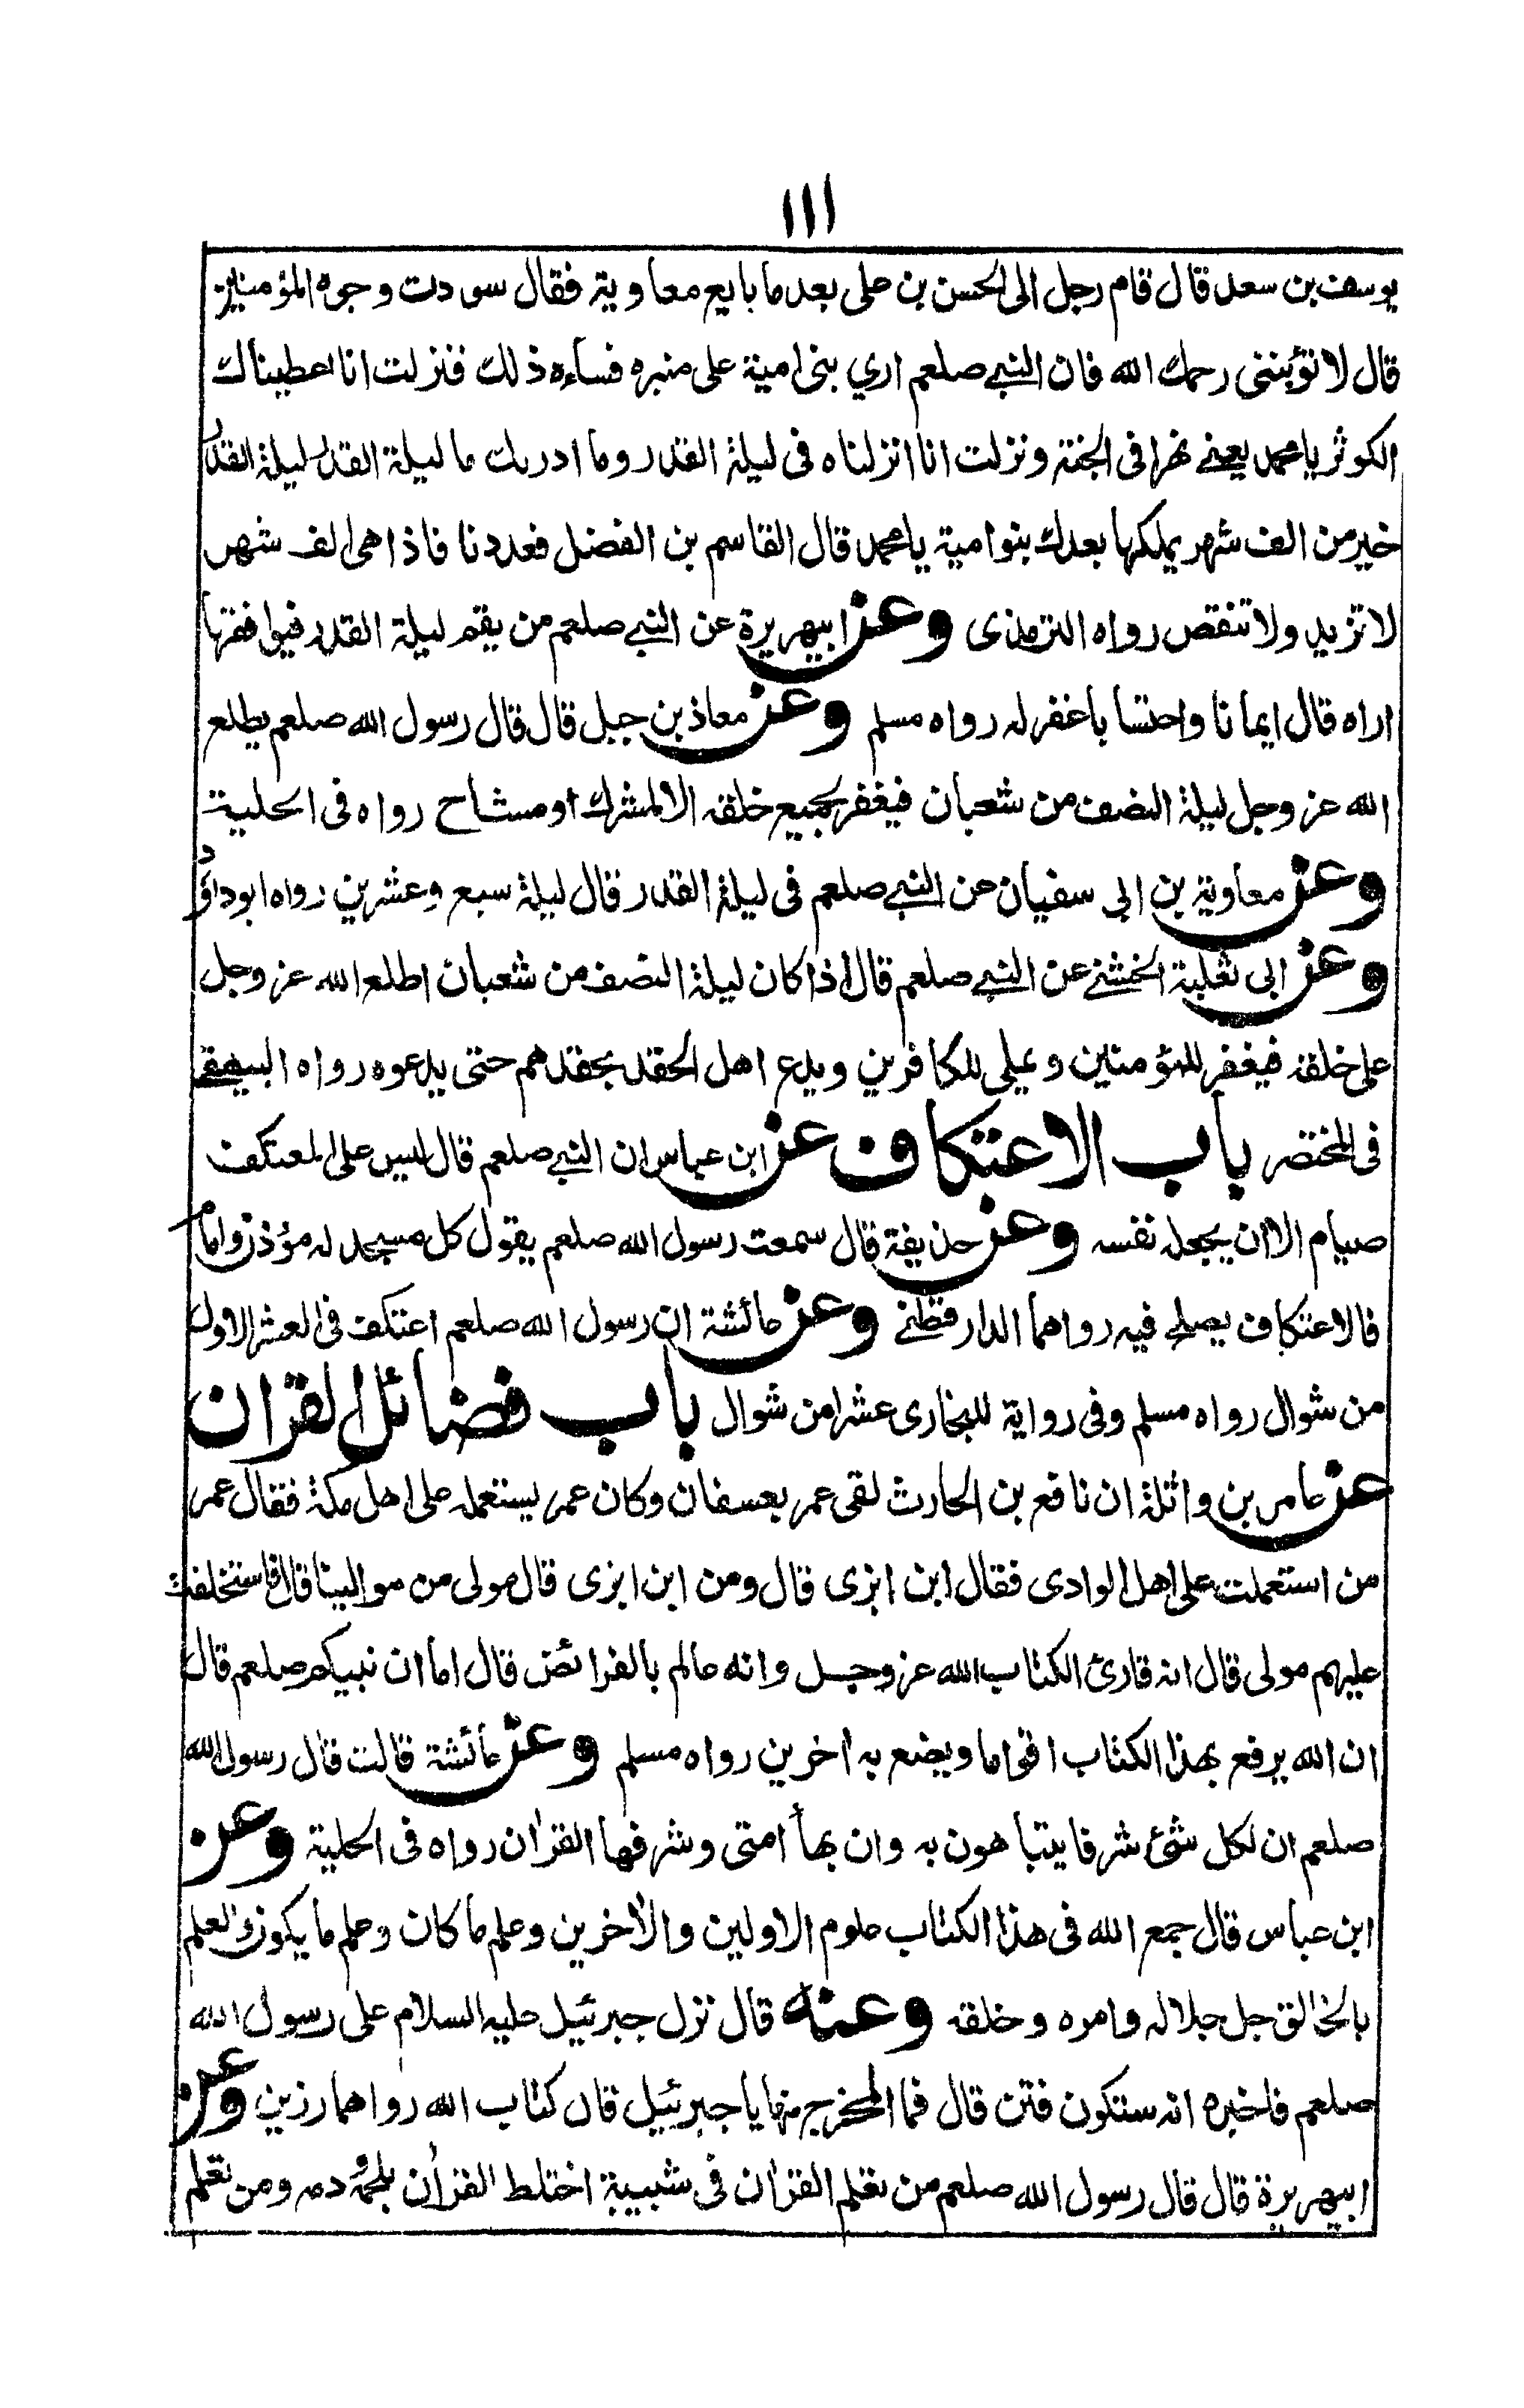 ١١١
يوسف بن سعد قال قام رجل الى الحسن بن على بعد ما بايع معاوية فقال سودت وجوه المؤمنين
قال لا تؤبننى رحمك الله فان النبى صلعم ارى بنى امية على منبره فساءه ذلك فنزلت انا اعطيناك
الكوثر يا محمد يعنى نهرا فى الجنة ونزلت انا انزلناه فى ليلة القدر وما ادريك ما ليلة القدر ليلة القدر
خير من الف شهر يملكها بعدك بنو امية يا محمد قال القاسم بن الفضل فعددنا فاذا هى الف شهر
لا تزيد ولا تنقص رواه الترمذى وعن ابيهريرة عن النبى صلعم من يقم ليلة القدر فيوافقها
اراه قال ايمانا واحتسابا غفر له رواه مسلم وعن معاذ بن جبل قال قال رسول الله صلعم يطلع
الله عز وجل ليلة النصف من شعبان فيغفر لجميع خلقه الا لمشرك او مشاح رواه فى الحلية
وعن معاوية بن ابى سفيان عن النبى صلعم فى ليلة القدر قال ليلة سبع وعشرين رواه ابو داؤد
وعن ابى ثعلبة الخشنى عن النبى صلعم قال اذا كان ليلة النصف من شعبان اطلع الله عز وجل
على خلقه فيغفر للمؤمنين ويملى للكافرين ويدع اهل الحقد بحقدهم حتى يدعوه رواه البيهقى
فى المختصر باب الاعتكاف عن ابن عباس ان النبى صلعم قال ليس على المعتكف
صيام الا ان يجعله نفسه وعن حذيفة قال سمعت رسول الله صلعم يقول كل مسجد له مؤذن وامام
فالاعتكاف يصلح فيه رواهما الدارقطنى وعن عائشة ان رسول الله صلعم اعتكف فى العشر الاول
من شوال رواه مسلم وفى رواية للبخارى عشرا من شوال باب فضائل القران
عن عامر بن واثلة ان نافع بن الحارث لقى عمر بعسفان وكان عمر يستعمله على اهل مكة فقال عمر
من استعملت على اهل الوادى فقال ابن ابزى قال ومن ابن ابزى قال مولى من موالينا قال فاستخلفت
عليهم مولى قال انه قارئ الكتاب الله عز وجل وانه عالم بالفرائض قال اما ان نبيكم صلعم قال
ان الله يرفع بهذا الكتاب اقواما ويضع به اخرين رواه مسلم وعن عائشة قالت قال رسول الله
صلعم ان لكل شئ شرفا يتباهون به وان بهأ امتى وشرفها القران رواه فى الحلية وعن
ابن عباس قال جمع الله فى هذا الكتاب علوم الاولين والاخرين وعلم ما كان وعلم ما يكون والعلم
بالخالق جل جلاله وامره وخلقه وعنه قال نزل جبرئيل عليه السلام على رسول الله
صلعم فاخبره انه ستكون فتن قال فما المخرج منها يا جبرئيل قال كتاب الله رواهما رزين وعن
ابيهريرة قال قال رسول الله صلعم من تعلم القران فى شبيبة اختلط القران بلحمه ودمه ومن تعلم